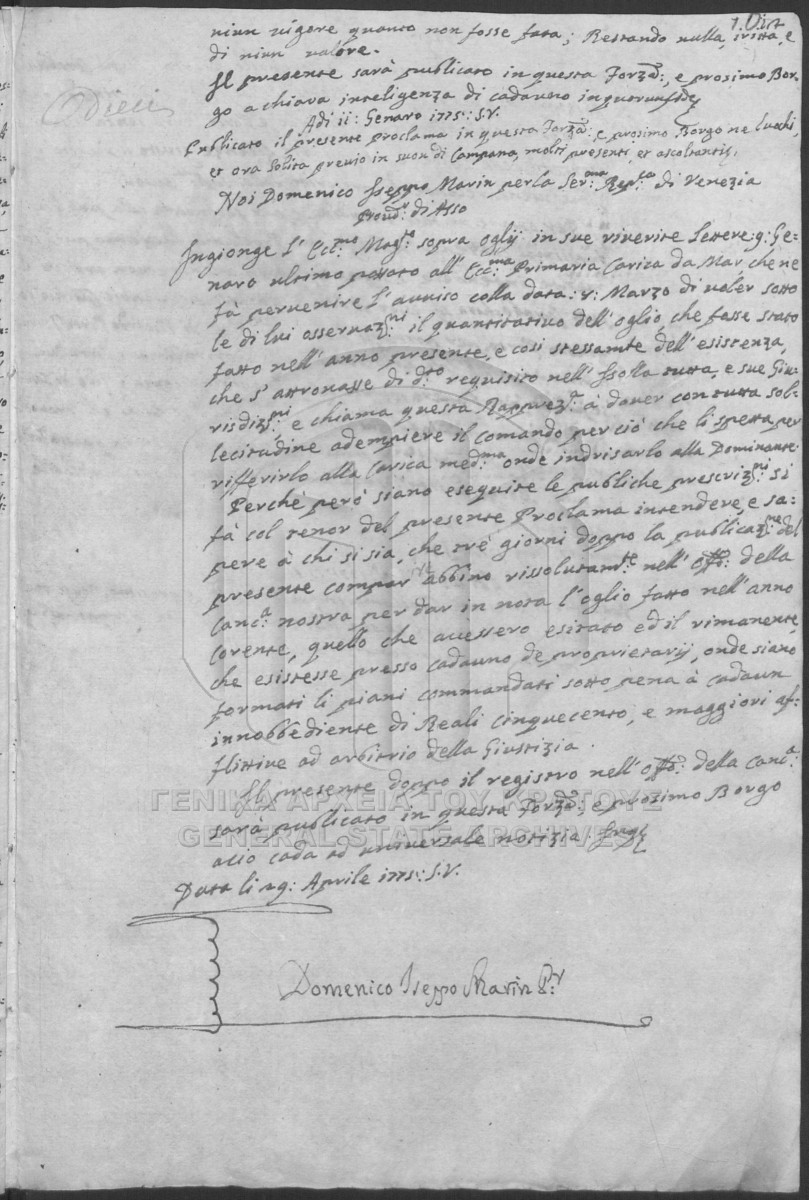 niun vigore quanto non fosse fata; Restando nulla, irrita, e
di niun valore.
Il presente sarà publicato in questa Forzza:, e prosimo Bor-
go a chiara inteligenza di cadauno inquorumfide
Adi 11: Genaro 1775: S.V.
Publicato il presente Proclama in questa Forzza:, e prosimo Borgo ne luochi,
et ora solita previo in suon di Campana, molti presenti et ascoltanti;
Dieci
Noi Domenico Iseppo Marin per la Ser:ma Rep:ca di Venezia
Proud:r di Asso
Ingionge l'Ecc:mo Mag:to sopra Oglij in sue riverite lettere: 9: Ge-
naro ultimo passato all'Ecc:ma Primaria Carica da Mar che ne
fà pervenire l'avviso colla data: 5: Marzo di voler sotto
le di lui osservaz:ni il quantitativo dell'oglio, che fosse stato
fatto nell'anno presente, e così stessamte dell'esistenza,
che s'attrovasse di d:to requisito nell'Isolla tutta, e sue Giu-
risdiz:ni e chiama questa Rapprez:a à dover con tutta sol-
lecitudine adempiere il comando per ciò che li spetta per
rifferirlo alla Carica med:ma onde indrisarlo alla Dominante.
Perchè però siano eseguite le publiche prescriz:ni si
fà col tenor del presente Proclama intendere, e sa-
pere à chi si sia, che trè giorni doppo la publicaz:ne del
presente comparir abbino rissolutam:te nell'Off:o della
Canc:a nostra per dar in nota l'oglio fatto nell'anno
Corente, quello che avessero esitato ed il rimanente,
che esistesse presso cadauno de proprietarij, onde siano
formati li piani commandati sotto pena à cadaun
innobbediente di Reali cinquecento, e maggiori af-
flittive ad arbitrio della Giustizia.
Il presente doppo il registro nell'Off:o della Canc:a
sarà publicato in questa Forzza:, e prosimo Borgo
acio cada ad universale notizia. Inq
Data li 29: Aprile 1775: S.V.
Domenico Iseppo Marin P:r
ΓΕΝΙΚΑ ΑΡΧΕΙΑ ΤΟΥ ΚΡΑΤΟΥΣ
GENERAL STATE ARCHIVES